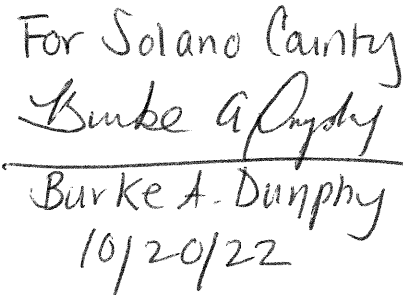 For Solano County
Burke A Dunphy
Burke A. Dunphy
10/20/22